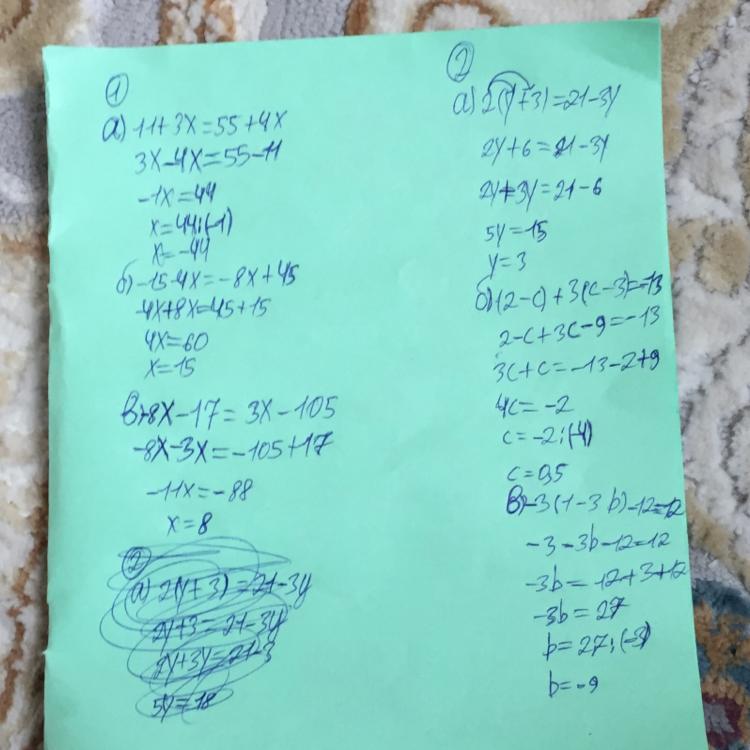 1
а) 11+3x=55+4x
3x-4x=55-11
-1x=44
x=44:(-1)
x=-44
б) -15-4x=-8x+45
-4x+8x=45+15
4x=60
x=15
в) -8x-17=3x-105
-8x-3x=-105+17
-11x=-88
x=8
2
(а) 2(y+3)=21-3y
2y+3=21-3y
2y+3y=21-3
5y=18
2
а) 2(y+3)=21-3y
2y+6=21-3y
2y+3y=21-6
5y=15
y=3
б) (2-c)+3(c-3)=-13
2-c+3c-9=-13
3c+c=-13-2+9
4c=-2
c=-2:(-4)
c=0,5
в) -3(1-3b)-12=12
-3-3b-12=12
-3b=12+3+12
-3b=27
b=27:(-3)
b=-9